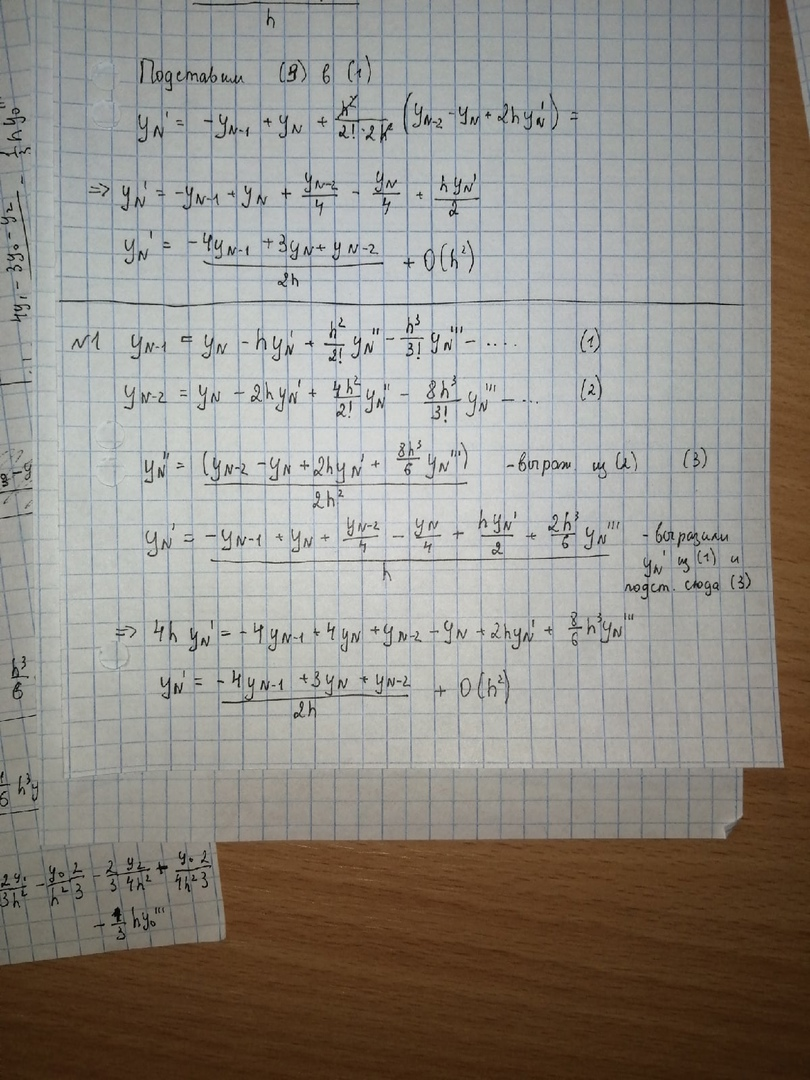 h
Подставим (9) в (1)
y_N' = -y_{N-1} + y_N + h²/(2!·2h²) (y_{N-2} - y_N + 2hy_N') =
=> y_N' = -y_{N-1} + y_N + y_{N-2}/4 - y_N/4 + hy_N'/2
y_N' = (-4y_{N-1} + 3y_N + y_{N-2})/2h + O(h²)
№1 y_{N-1} = y_N - hy_N' + h²/2! y_N'' - h³/3! y_N''' - .... (1)
y_{N-2} = y_N - 2hy_N' + 4h²/2! y_N'' - 8h³/3! y_N''' - ... (2)
y_N'' = (y_{N-2} - y_N + 2hy_N' + 8h³/6 y_N''')/2h² - выраж. из (2) (3)
y_N' = (-y_{N-1} + y_N + y_{N-2}/4 - y_N/4 + hy_N'/2 + 2h³/6 y_N''')/h - выразили
y_N' из (1) и
подст. сюда (3)
=> 4h y_N' = -4y_{N-1} + 4y_N + y_{N-2} - y_N + 2hy_N' + 8/6 h³y_N'''
y_N' = (-4y_{N-1} + 3y_N + y_{N-2})/2h + O(h²)
4y₁ - 3y₀ - y₂
h³/6
h³y
2y₁/3h² - y₀2/h²3 - 2/3 y₂/4h² + y₀2/4h²3
hy₀'''